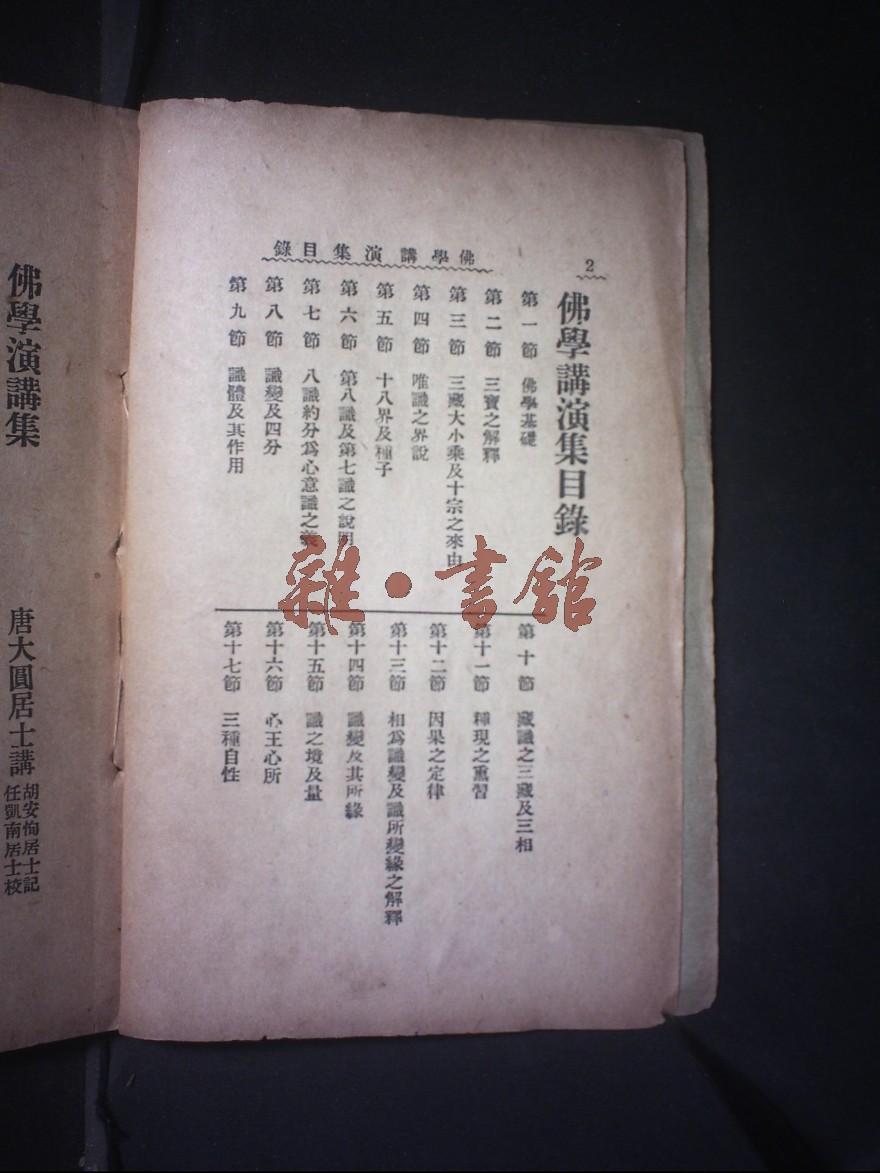 2
佛學講演集目錄
佛學講演集目錄
第一節　佛學基礎
第二節　三寶之解釋
第三節　三藏大小乘及十宗之來由
第四節　唯識之界說
第五節　十八界及種子
第六節　第八識及第七識之說明
第七節　八識約分爲心意識之義
第八節　識變及四分
第九節　識體及其作用
第十節　藏識之三藏及三相
第十一節　種現之熏習
第十二節　因果之定律
第十三節　相爲識變及識所變緣之解釋
第十四節　識變及其所緣
第十五節　識之境及量
第十六節　心王心所
第十七節　三種自性
雜·書館
佛學演講集
唐大圓居士講
胡安恂居士記
任凱南居士校